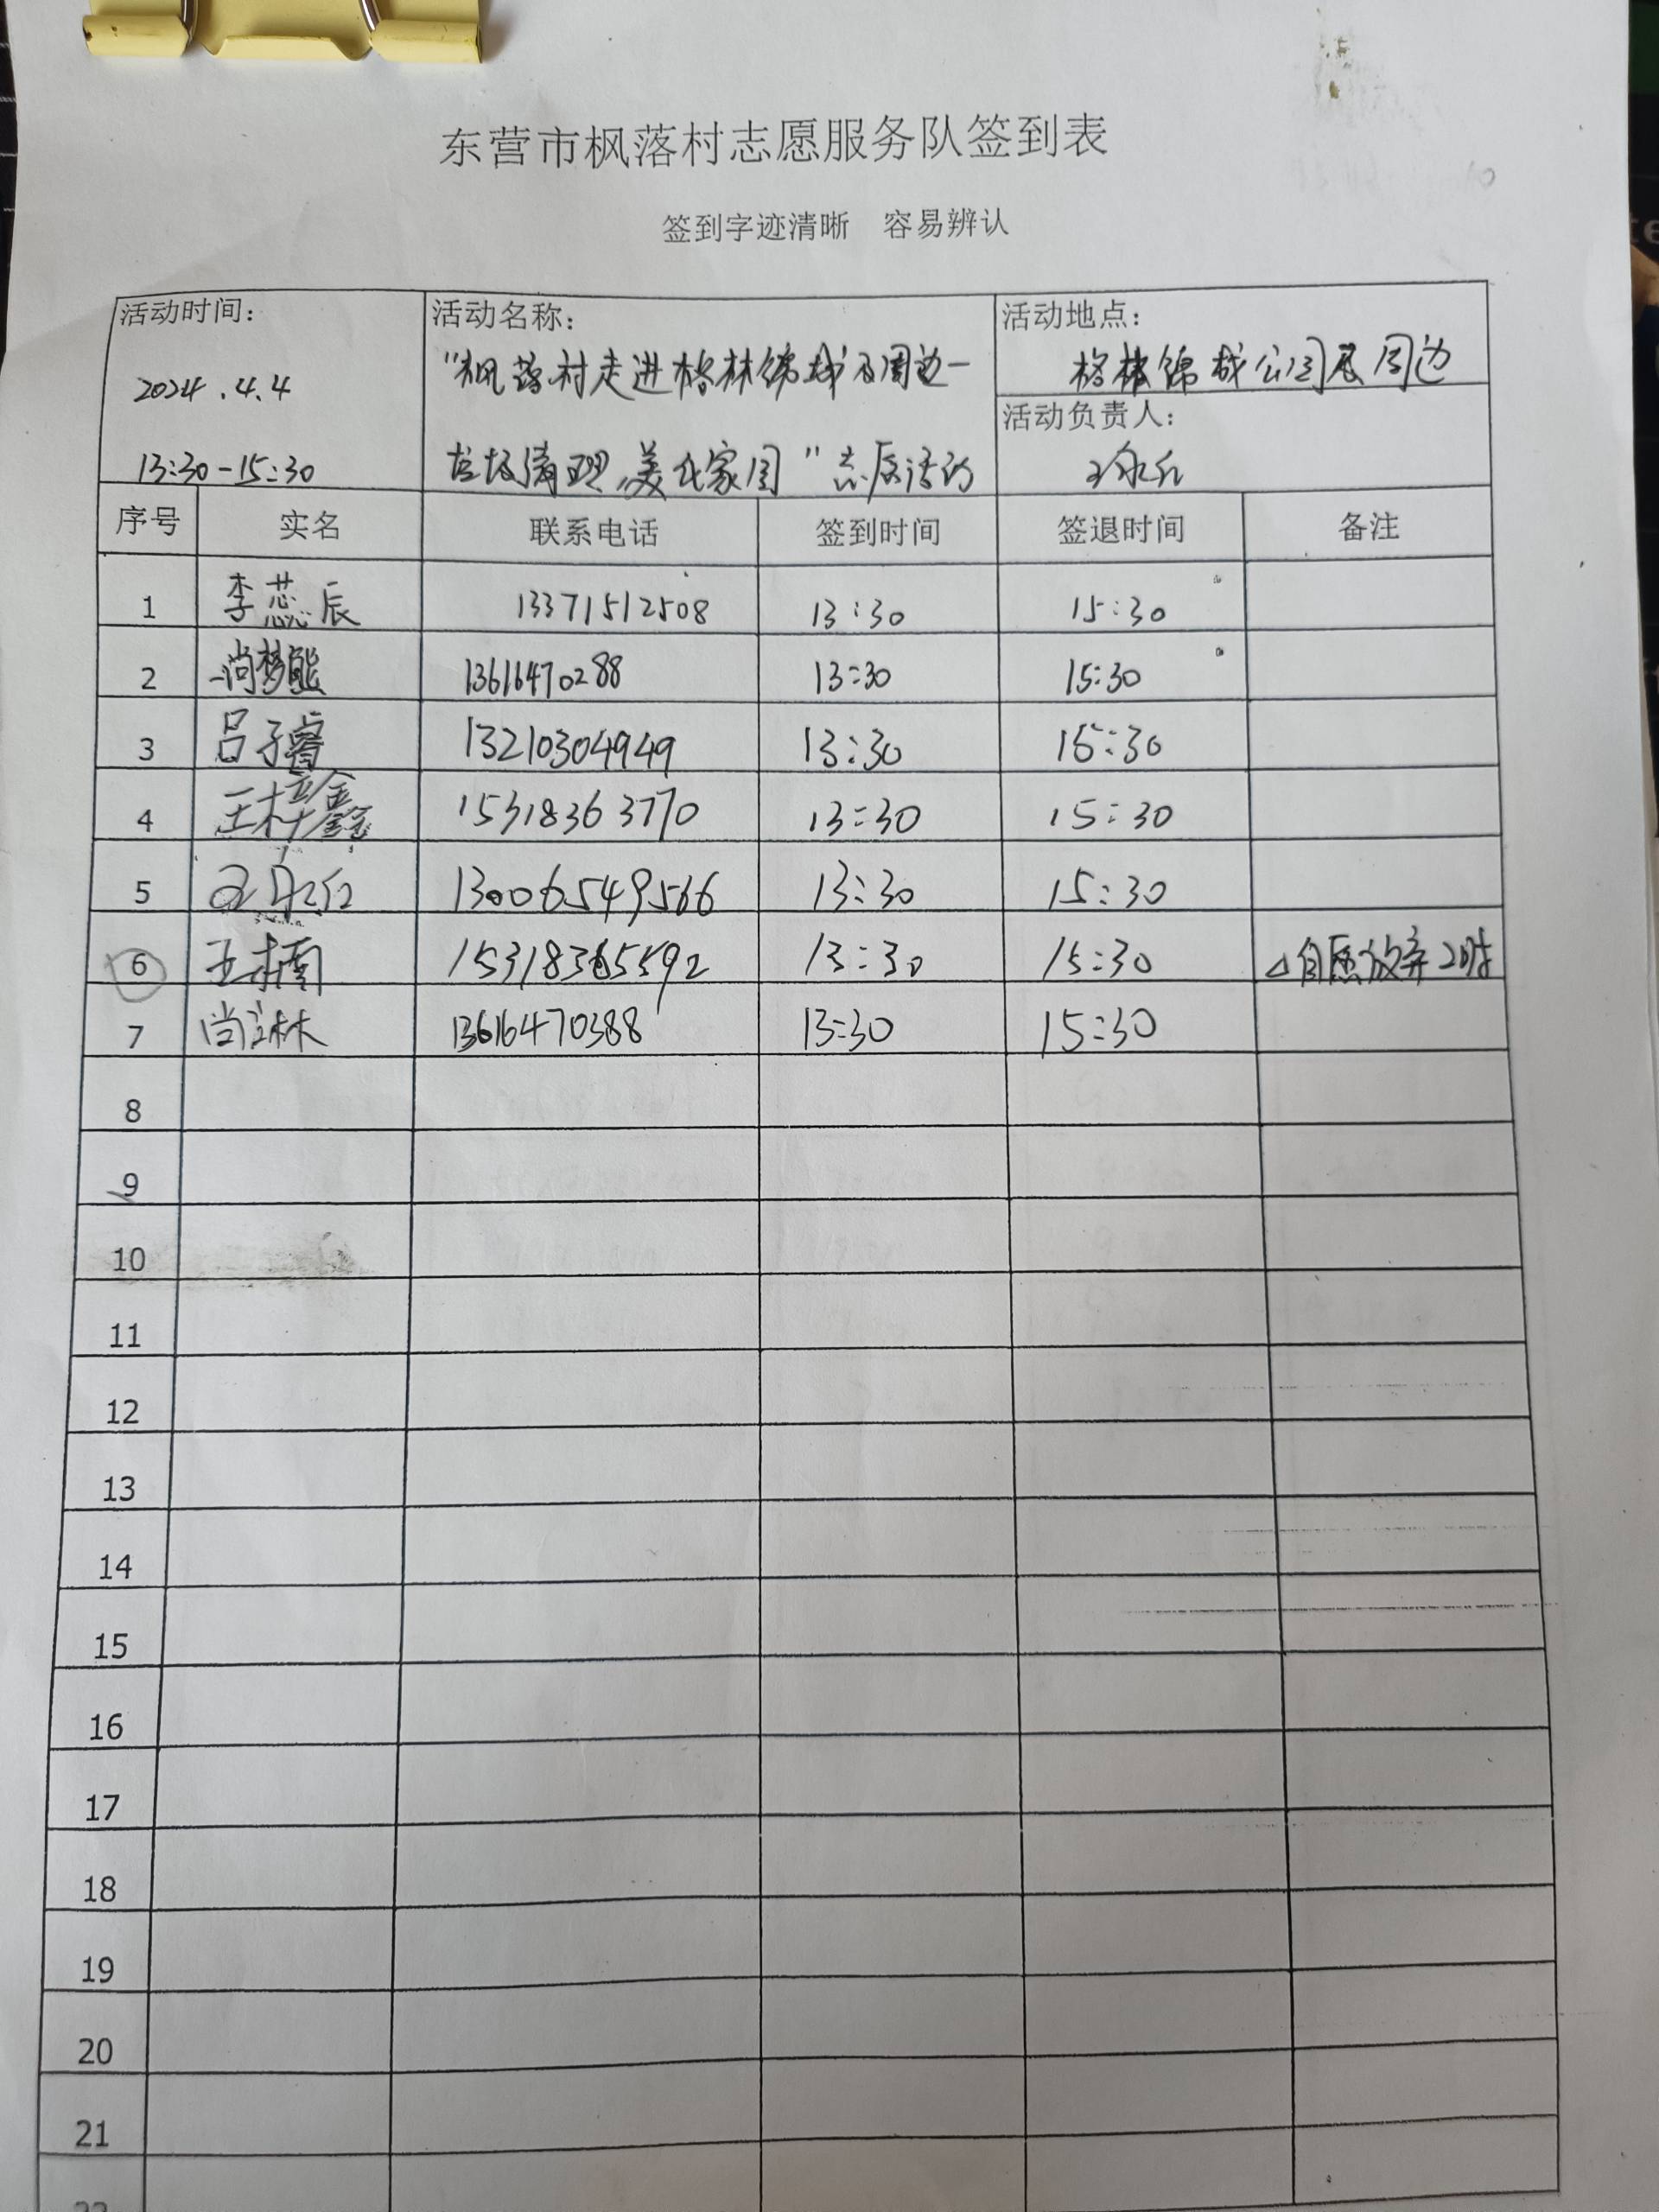 东营市枫落村志愿服务队签到表
签到字迹清晰 容易辨认
活动时间：
2024.4.4
13:30-15:30
活动名称：
"枫落村走进格林锦城及周边—
垃圾清理,美化家园"志愿活动
活动地点：
格林锦城公园及周边
活动负责人：
序号 实名 联系电话 签到时间 签退时间 备注
1 李蕊辰 13371512508 13:30 15:30
2 尚梦熊 13616470288 13:30 15:30
3 吕子睿 13210304949 13:30 15:30
4 王梓鑫 15318363770 13:30 15:30
5 13006549566 13:30 15:30
6 王楠 15318365592 13:30 15:30 △自愿放弃2时
7 13616470388 13:30 15:30
8
9
10
11
12
13
14
15
16
17
18
19
20
21